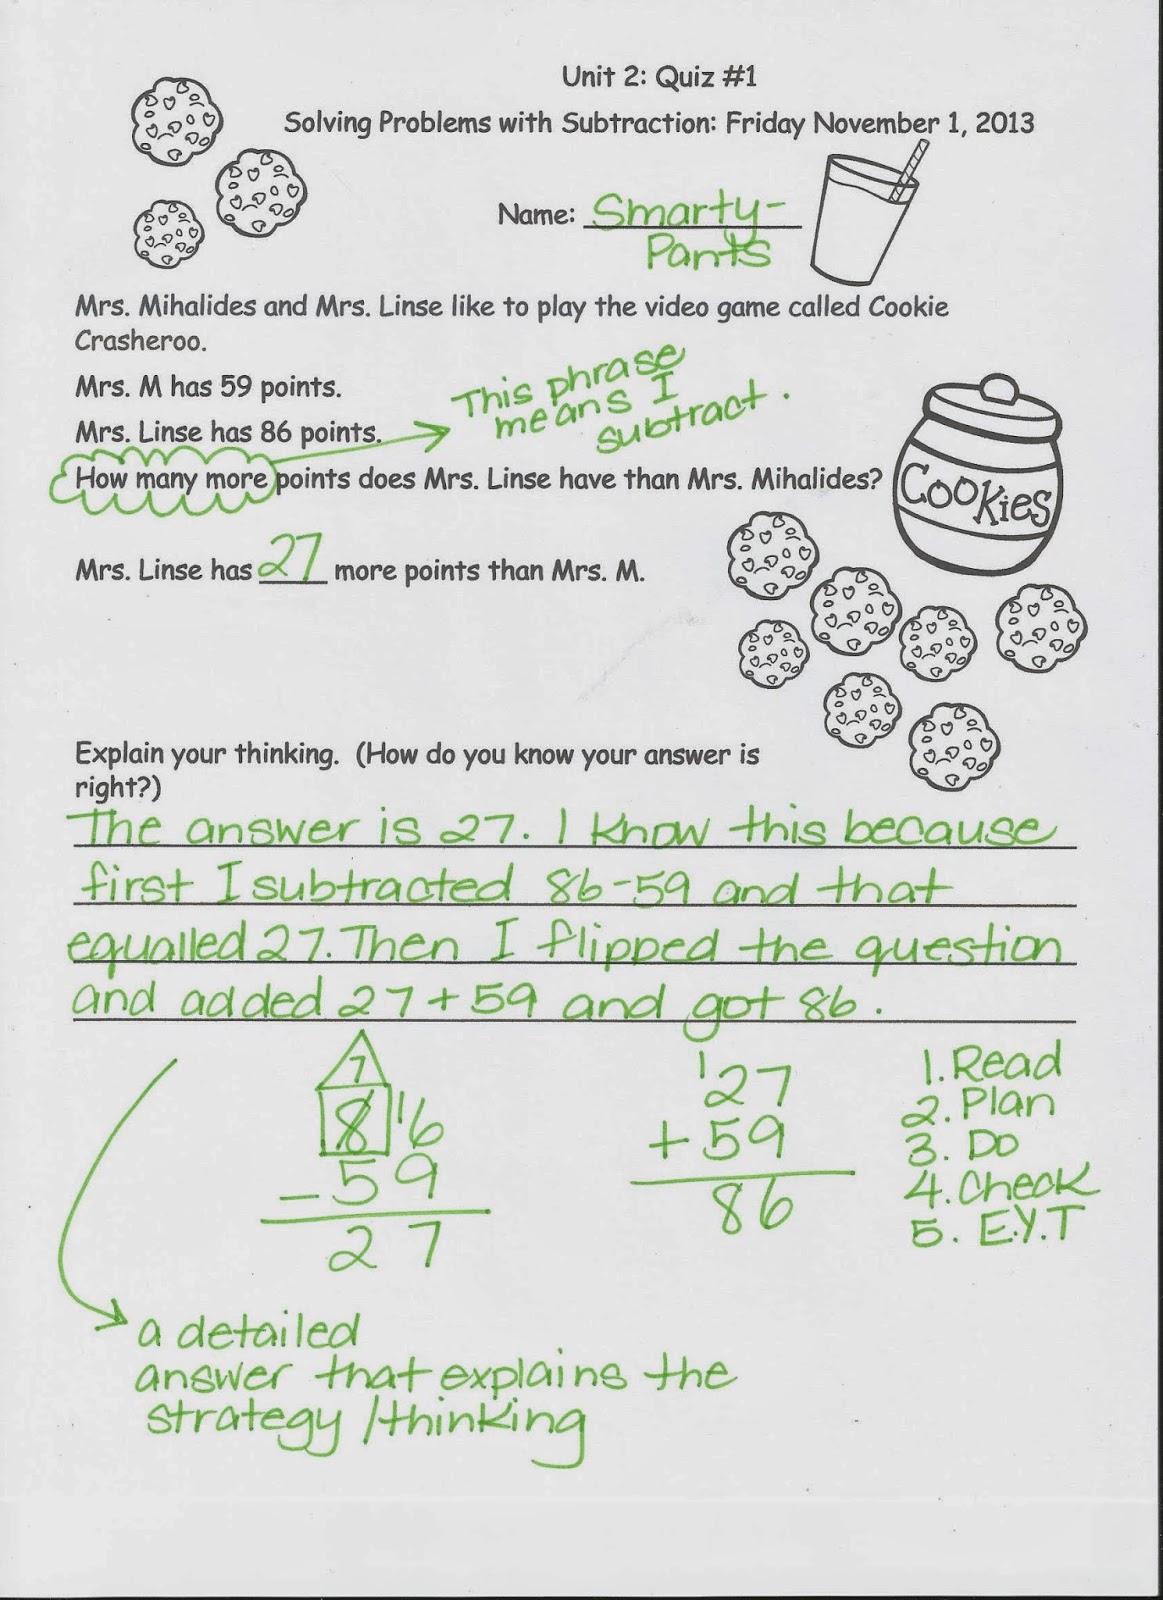 Unit 2: Quiz #1
Solving Problems with Subtraction: Friday November 1, 2013
Name: Smarty-
Pants
Mrs. Mihalides and Mrs. Linse like to play the video game called Cookie
Crasheroo.
Mrs. M has 59 points.
This phrase
means I
subtract.
Mrs. Linse has 86 points.
How many more points does Mrs. Linse have than Mrs. Mihalides?
COOKIES
Mrs. Linse has 27 more points than Mrs. M.
Explain your thinking. (How do you know your answer is
right?)
The answer is 27. I know this because
first I subtracted 86-59 and that
equalled 27. Then I flipped the question
and added 27+59 and got 86.
7
8 16
- 59
27
1
27
+ 59
86
1. Read
2. Plan
3. Do
4. Check
5. E.Y.T
a detailed
answer that explains the
strategy/thinking